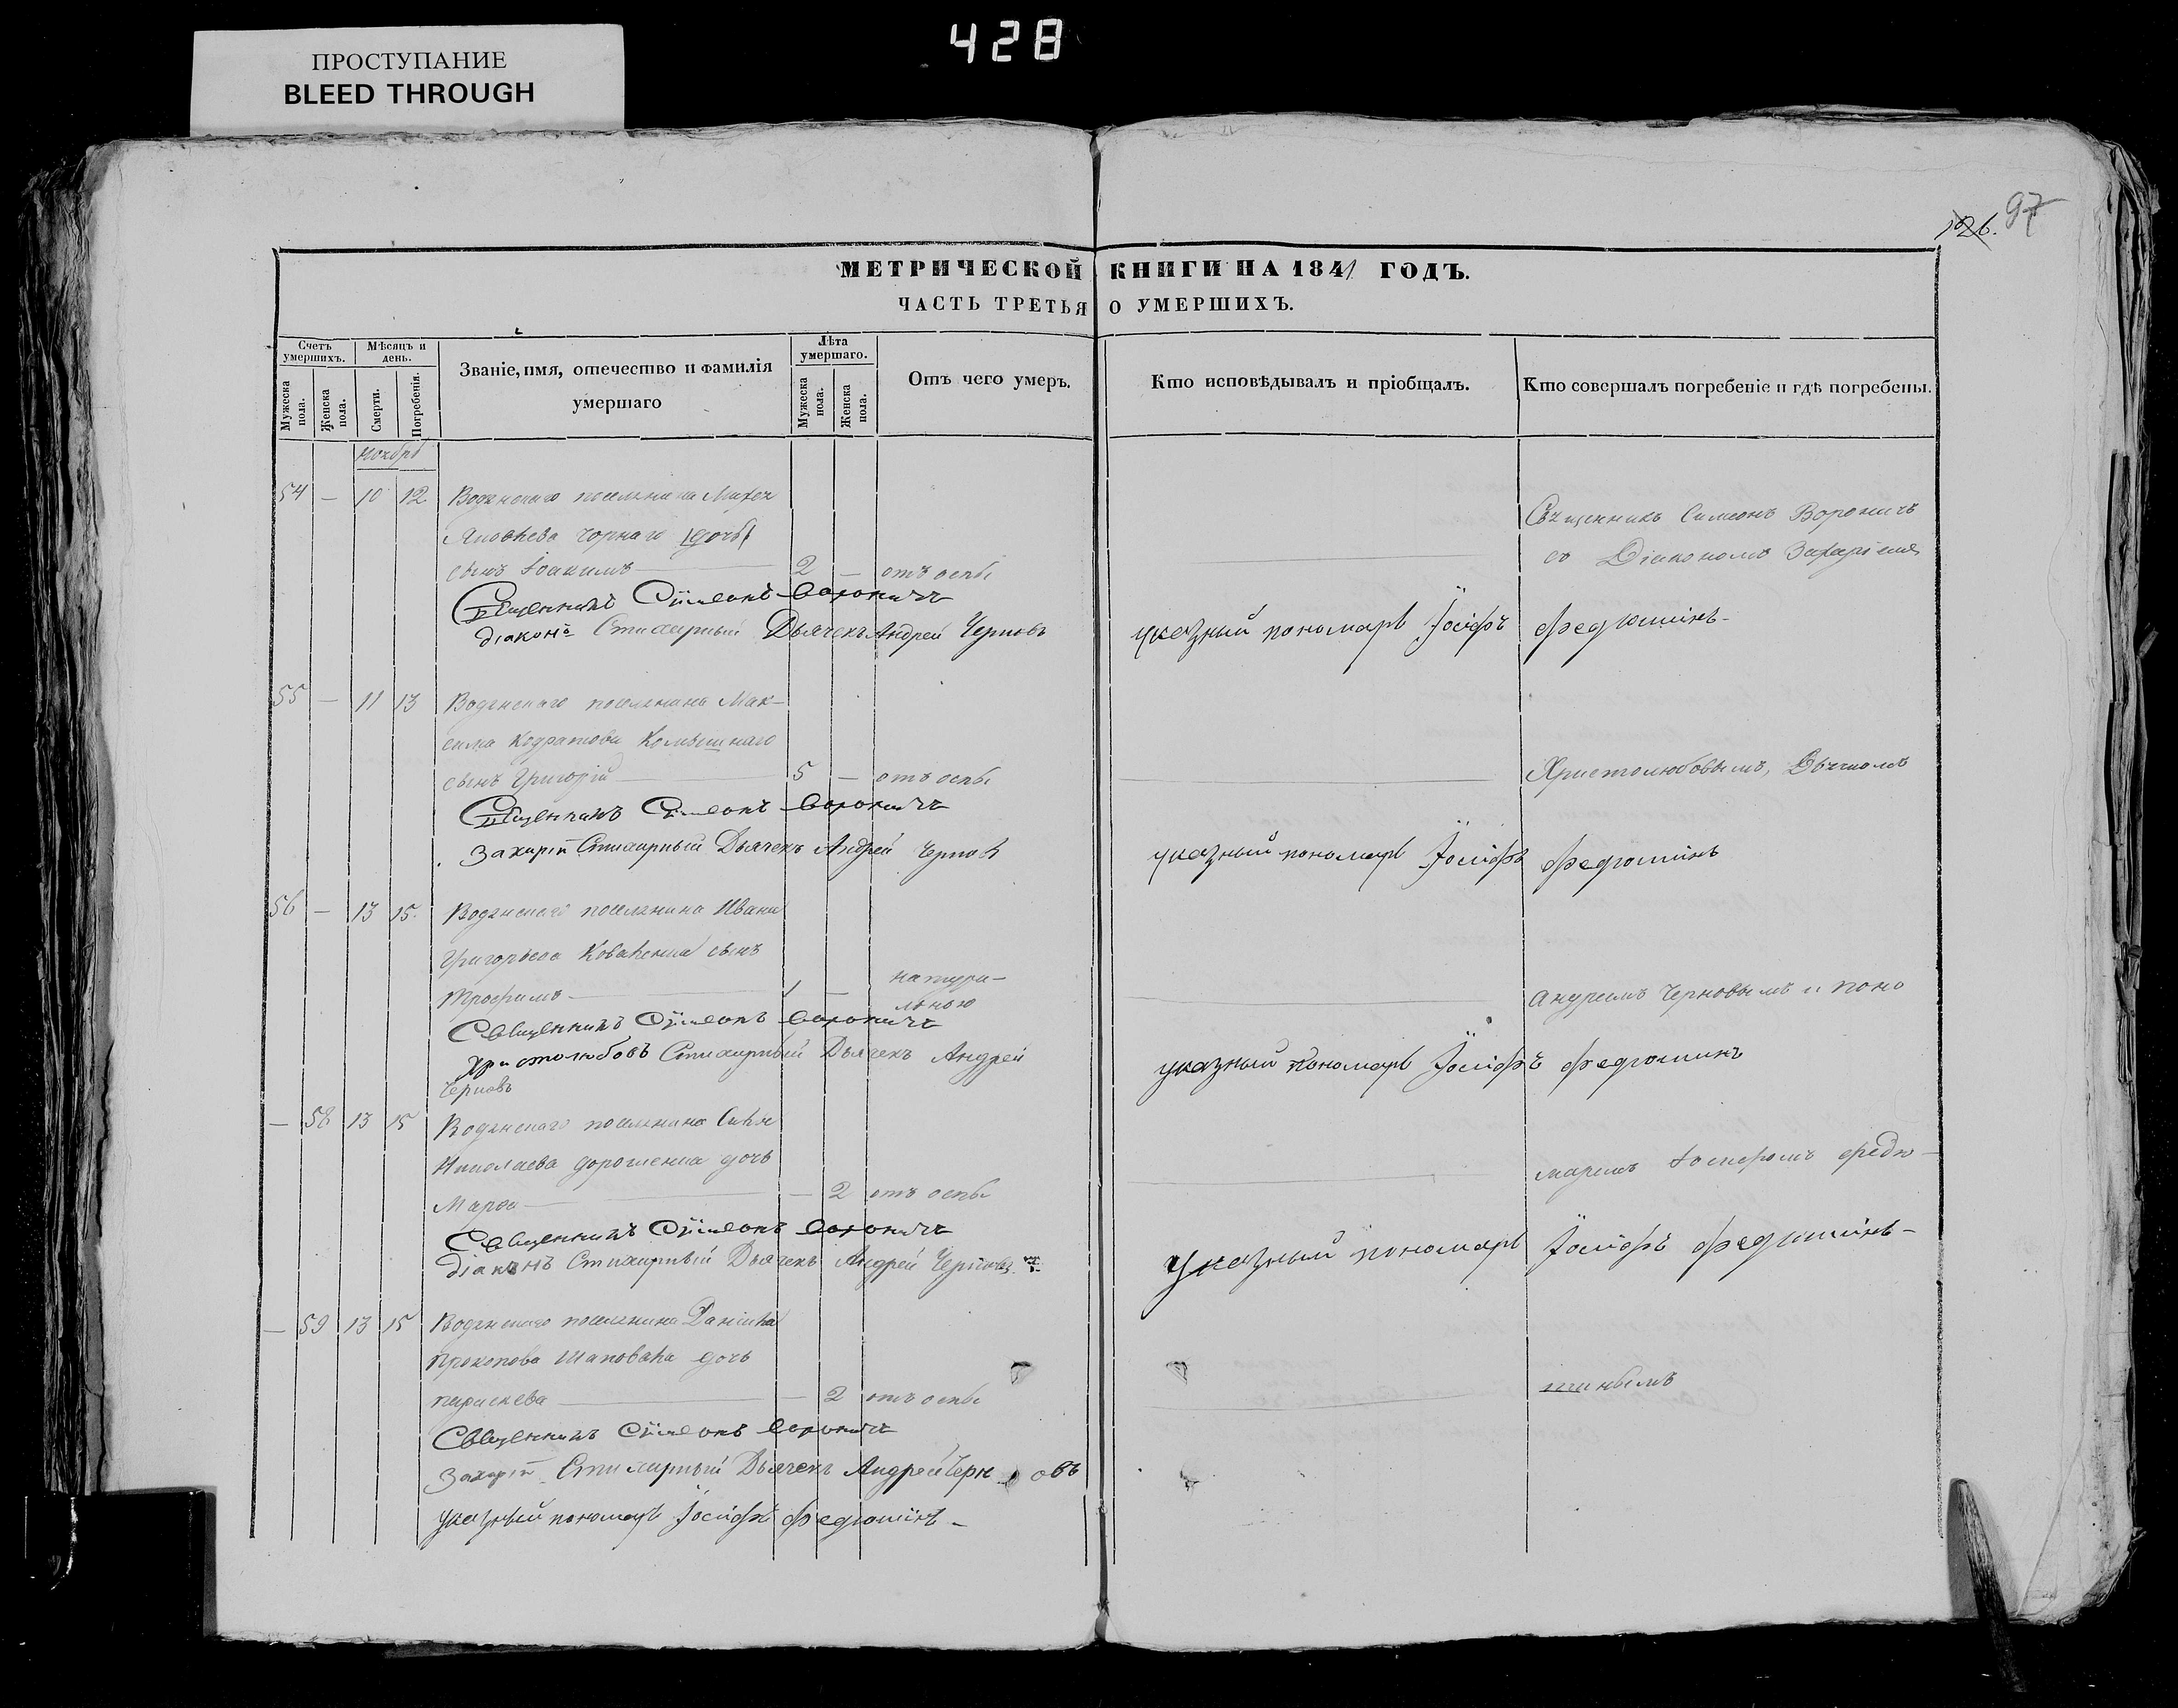 428
ПРОСТУПАНИЕ
BLEED THROUGH
126. 97
МЕТРИЧЕСКОЙ КНИГИ НА 1841 ГОДЪ.
ЧАСТЬ ТРЕТЬЯ О УМЕРШИХЪ.
Счетъ умершихъ.
Мѣсяцъ и день.
Званіе, имя, отечество и фамилія умершаго
Лѣта умершаго.
Отъ чего умеръ.
Кто исповѣдывалъ и пріобщалъ.
Кто совершалъ погребеніе и гдѣ погребены.
Мужеска пола.
Женска пола.
Смерти.
Погребенія.
Мужеска пола.
Женска пола.
ноября
54 — 10 12 Водянскаго поселянина Михея
Яковлева Чорнаго дочь
сынъ Іоакимъ — 2 — отъ оспы
Священникъ Симеонъ Вороничъ
съ Діакономъ Захаріемъ
Священникъ Сѵмеонъ Вороничъ
діаконъ Стихарный Дьячекъ Андрей Черновъ указный пономарь Іосифъ Федюшинъ
55 — 11 13 Водянскаго поселянина Мак-
сима Кодратова Комышнаго
сынъ Григорій — 5 — отъ оспы
Христолюбовымъ, Дьячкомъ
Священникъ Сѵмеонъ Вороничъ
Захарій Стихарный Дьячекъ Андрей Черновъ указный пономарь Іосифъ Федюшинъ
56 — 13 15 Водянскаго поселянина Ивана
Григорьева Коваленка сынъ
Трофимъ — 1 — натура-
льною
Андреемъ Черновымъ и поно
Священникъ Сѵмеонъ Вороничъ
Христолюбовъ Стихарный Дьячекъ Андрей
Черновъ
указный пономарь Іосифъ Федюшинъ
— 58 13 15 Водянскаго поселянина Силы
Николаева Дорошенка дочь
Марфа — — 2 отъ оспы
маремъ Іосифомъ Федю-
Священникъ Сѵмеонъ Вороничъ
діаконъ Стихарный Дьячекъ Андрей Черновъ указный пономарь Іосифъ Федюшинъ
— 59 13 15 Водянскаго поселянина Даніила
Прокопова Шаповала дочь
Параскева — — 2 отъ оспы
шинымъ
Священникъ Сѵмеонъ Вороничъ
Захарій Стихарный Дьячекъ Андрей Черновъ
указный пономарь Іосифъ Федюшинъ